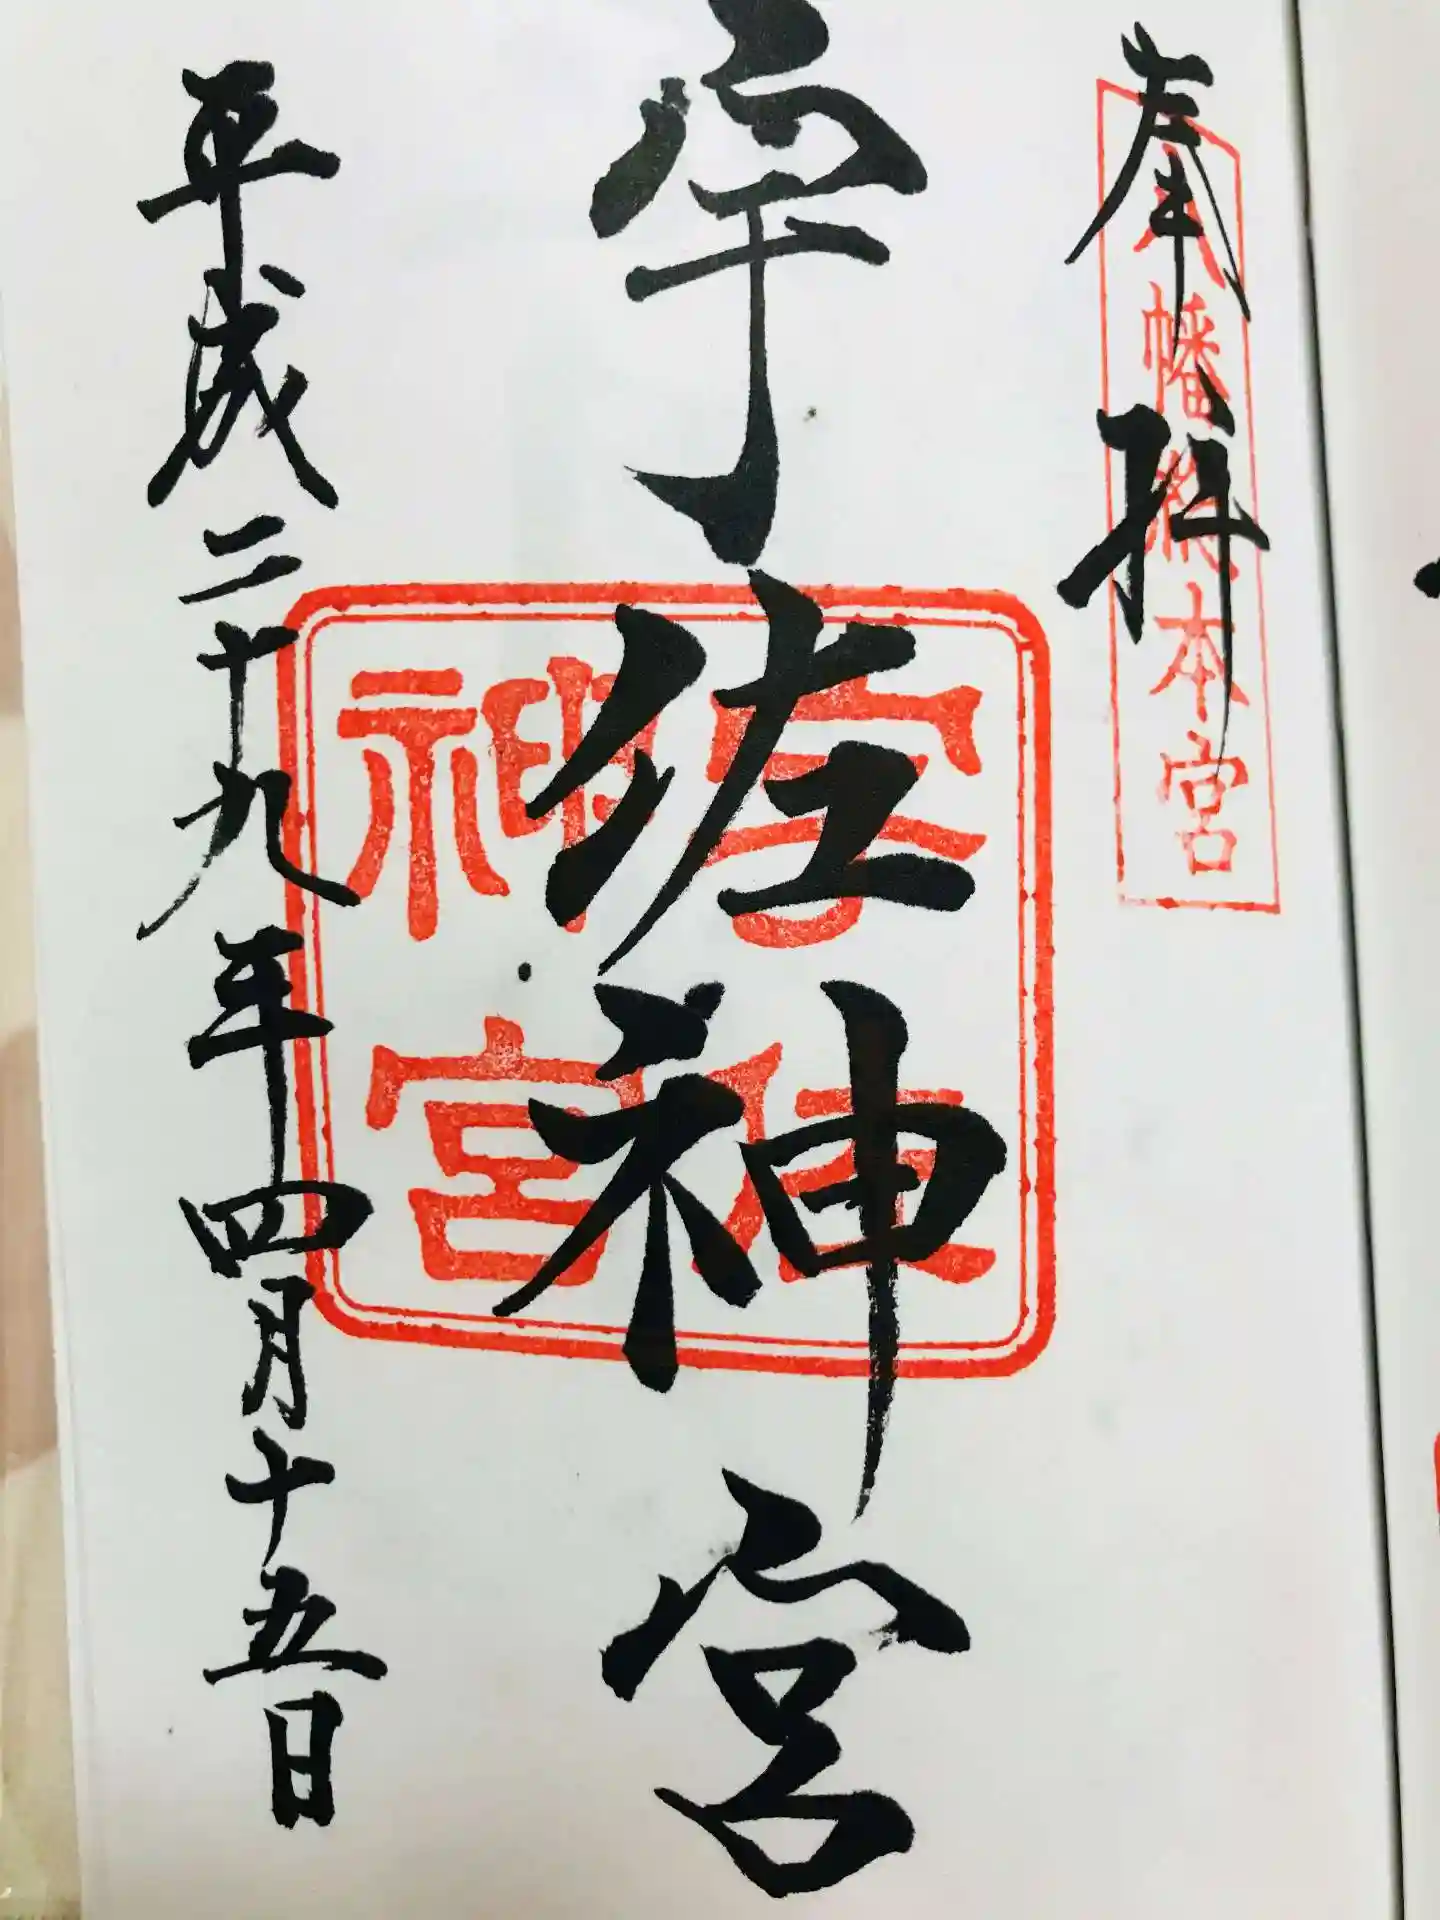 奉拝
八幡総本宮
宇佐神宮
宇佐
神宮
平成二十九年四月十五日